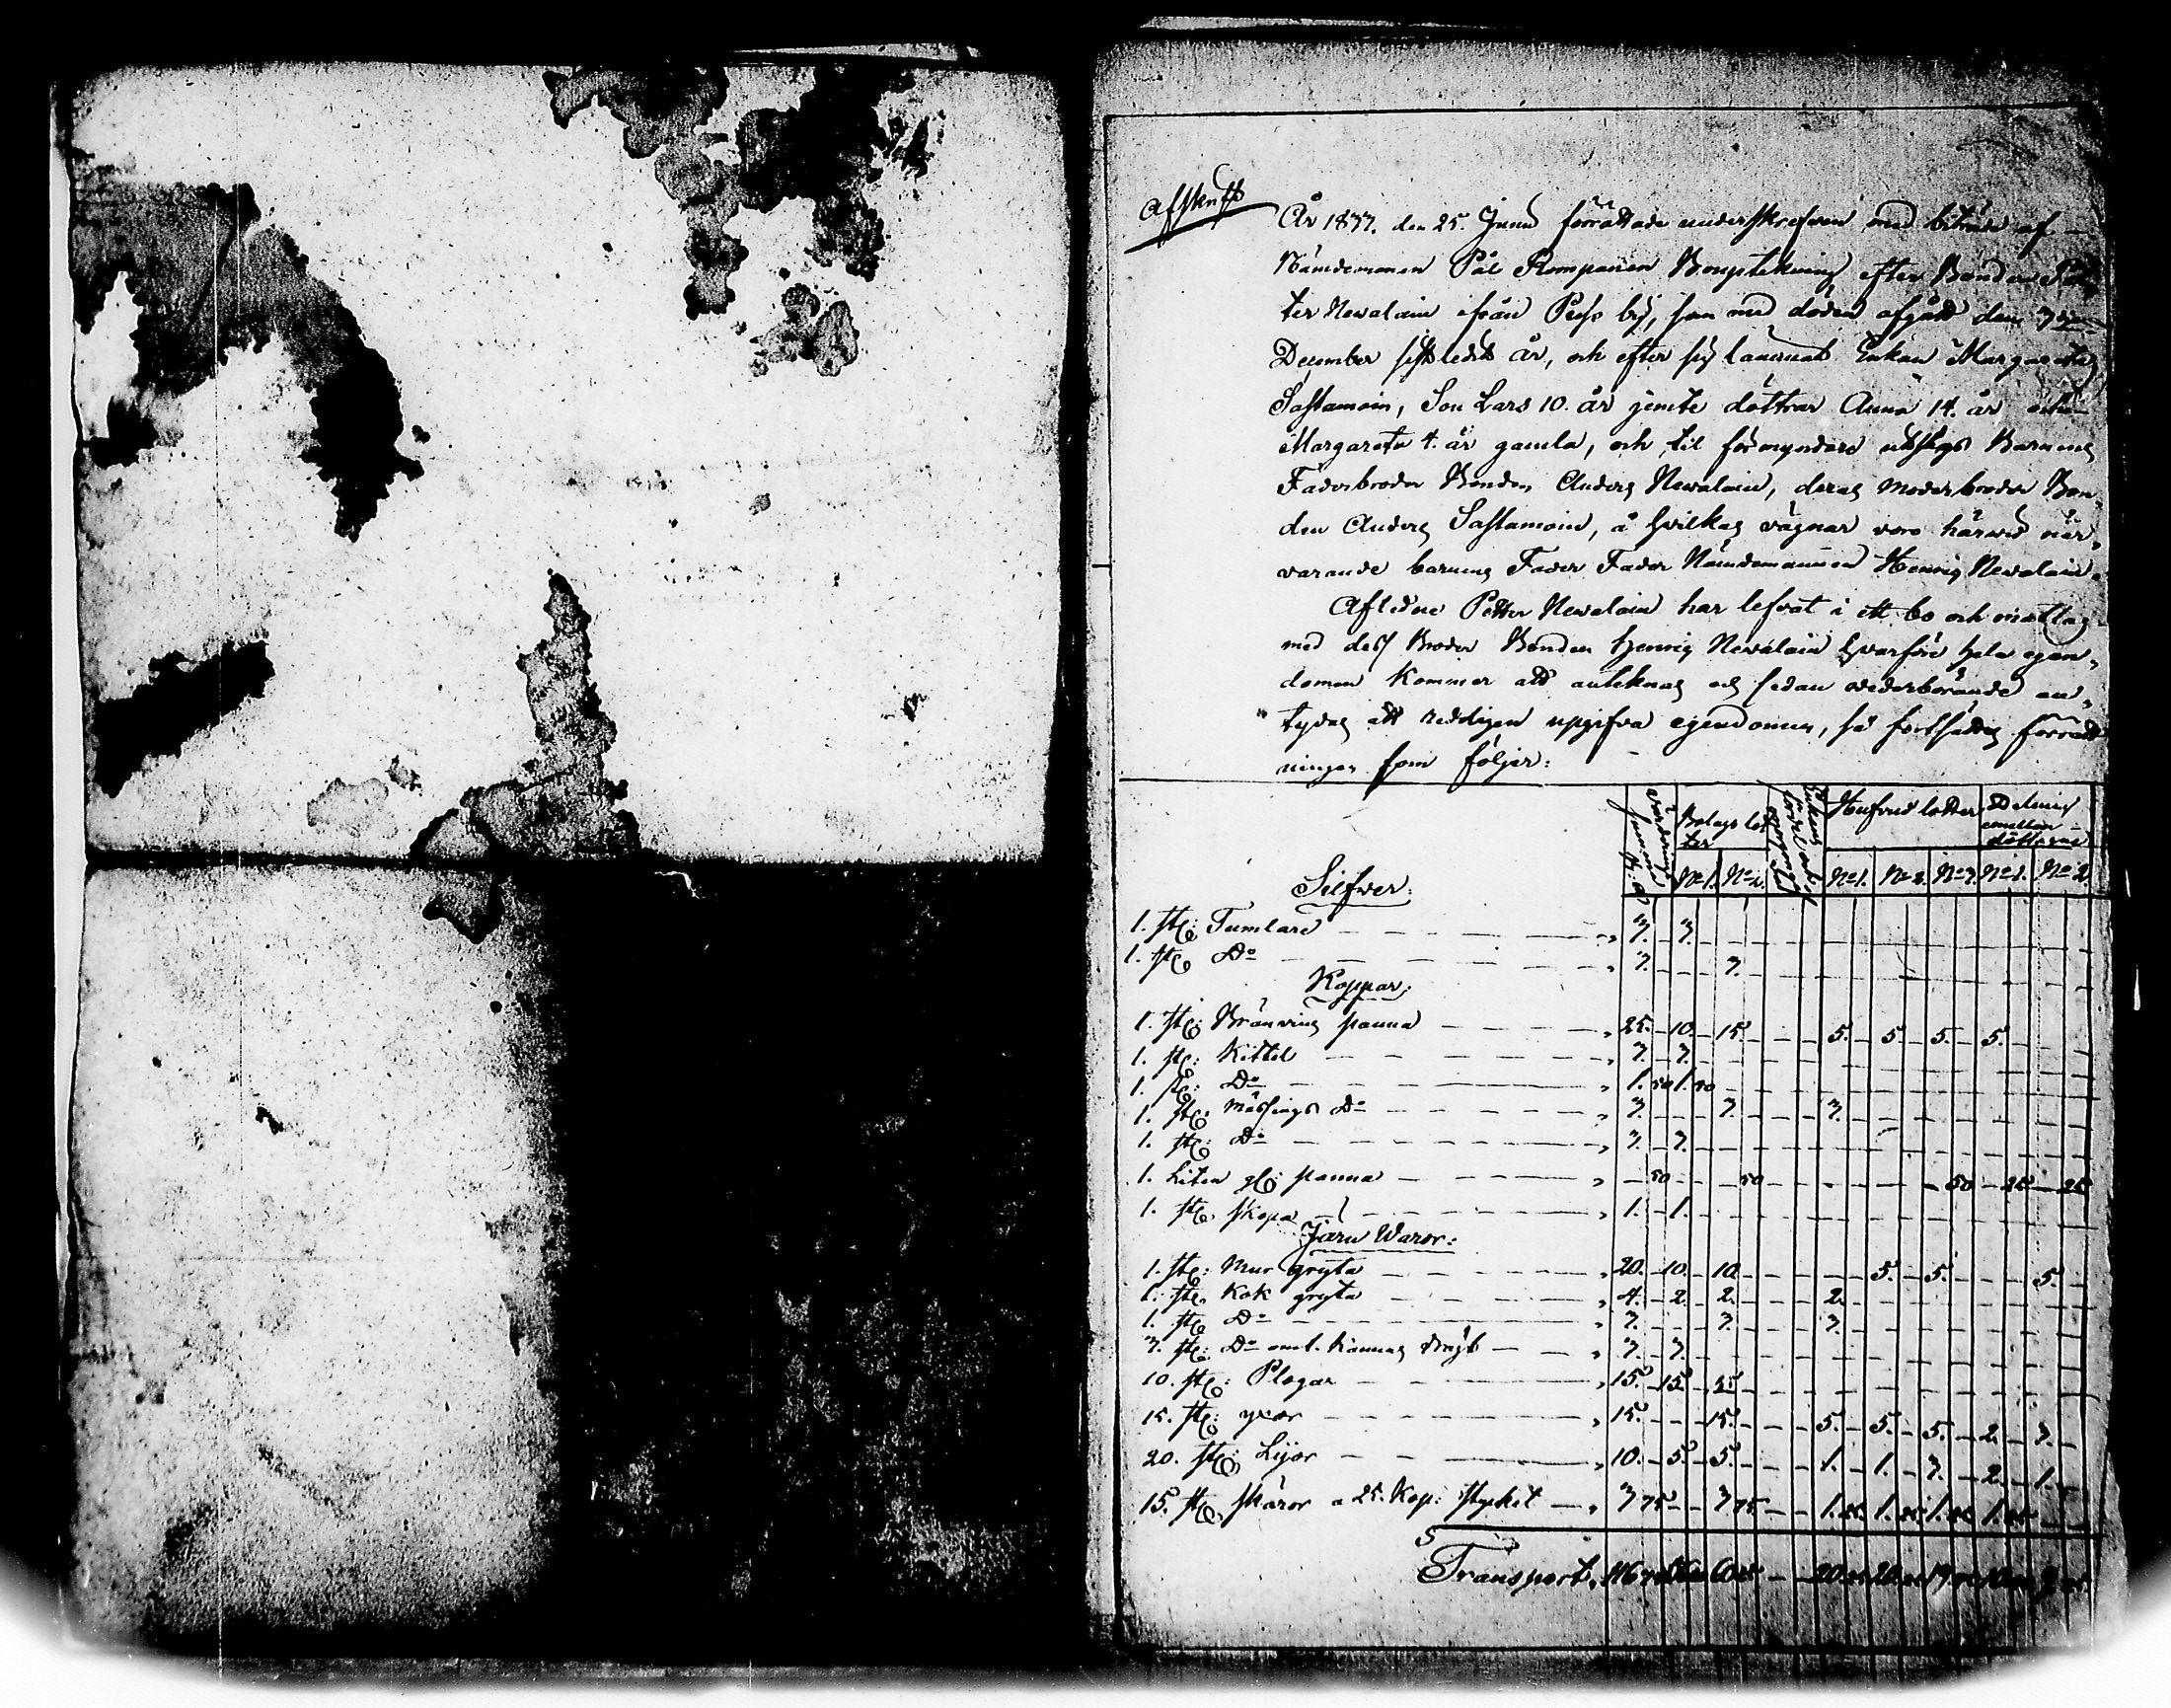 Afskrift
År 1837. den 25. Junii förrättade underskrefven med biträde af
Nämdemannen Pål Rompanen Bouptekning efter Bonden Pet
ter Newalain ifrån Puso by, som med döden afgått den
December sistledit år, och efter sig lämnat Enkan Margareta
Sastamoin, Son Lars 10. år jemte döttrar Anna 14. år och
Margareta 4. år gamla, och til förmyndare utsågs Barnens
Faderbroder Bonden Anders Newalain, deras moderbroder Bon„
den Anders Sastamoin, å hvilkas vägnar voro härwid när„
varande barnens Fader Fader Nämdemannen Henrig Newalain.
Afledne Petter Newalain har lefvat i ett bo och matlag
med dess Broder Bonden Henrig Newalain hvarföre hela egen„
domen kommer att anteknas och sedan wederbörande an„
tydas att redeligen upgifva egendomen, så fortsättes förrätt
ningen som följer:
Värderings Summa
Bolags lot
ter
Hufvud lotter
Delning
emellan
döttrarne
No 1. No 2. No 1. No 2. No 3. No 1. No 2.
Silfwer:
1. st: Tumlare 3. 3.
1. st: Do 3. 3.
Koppar:
1. st: Bränvins panna 25. 10. 15. 5. 5. 5. 5.
1. st: Kittel 3. 3.
1. st: Do 1. 50 1. 50
1. st: Mässings Do 3. 3. 3.
1. st: Do 3. 3.
1. Liten gl: panna 50 50 50 25 25
1. st: skopa 1. 1.
Järn Waror:
1. st: Mur gryta 20. 10. 10. 5. 5. 5.
1. st: Kok gryta 4. 2. 2. 2.
1. st: Do 3. 3. 3.
3. st: Do om 1. Kannas drägt 3. 3.
10. st: Plogar 15. 15.
15. st: yxor 15. 15. 5. 5. 5. 2. 3.
20. st: Lijor 10. 5. 5. 1. 1. 3. 2. 1.
15. st: skäror a 25. Kop: stycket 3 75 3 75 1. 25 1. 25 1. 25 1. 25
Transport